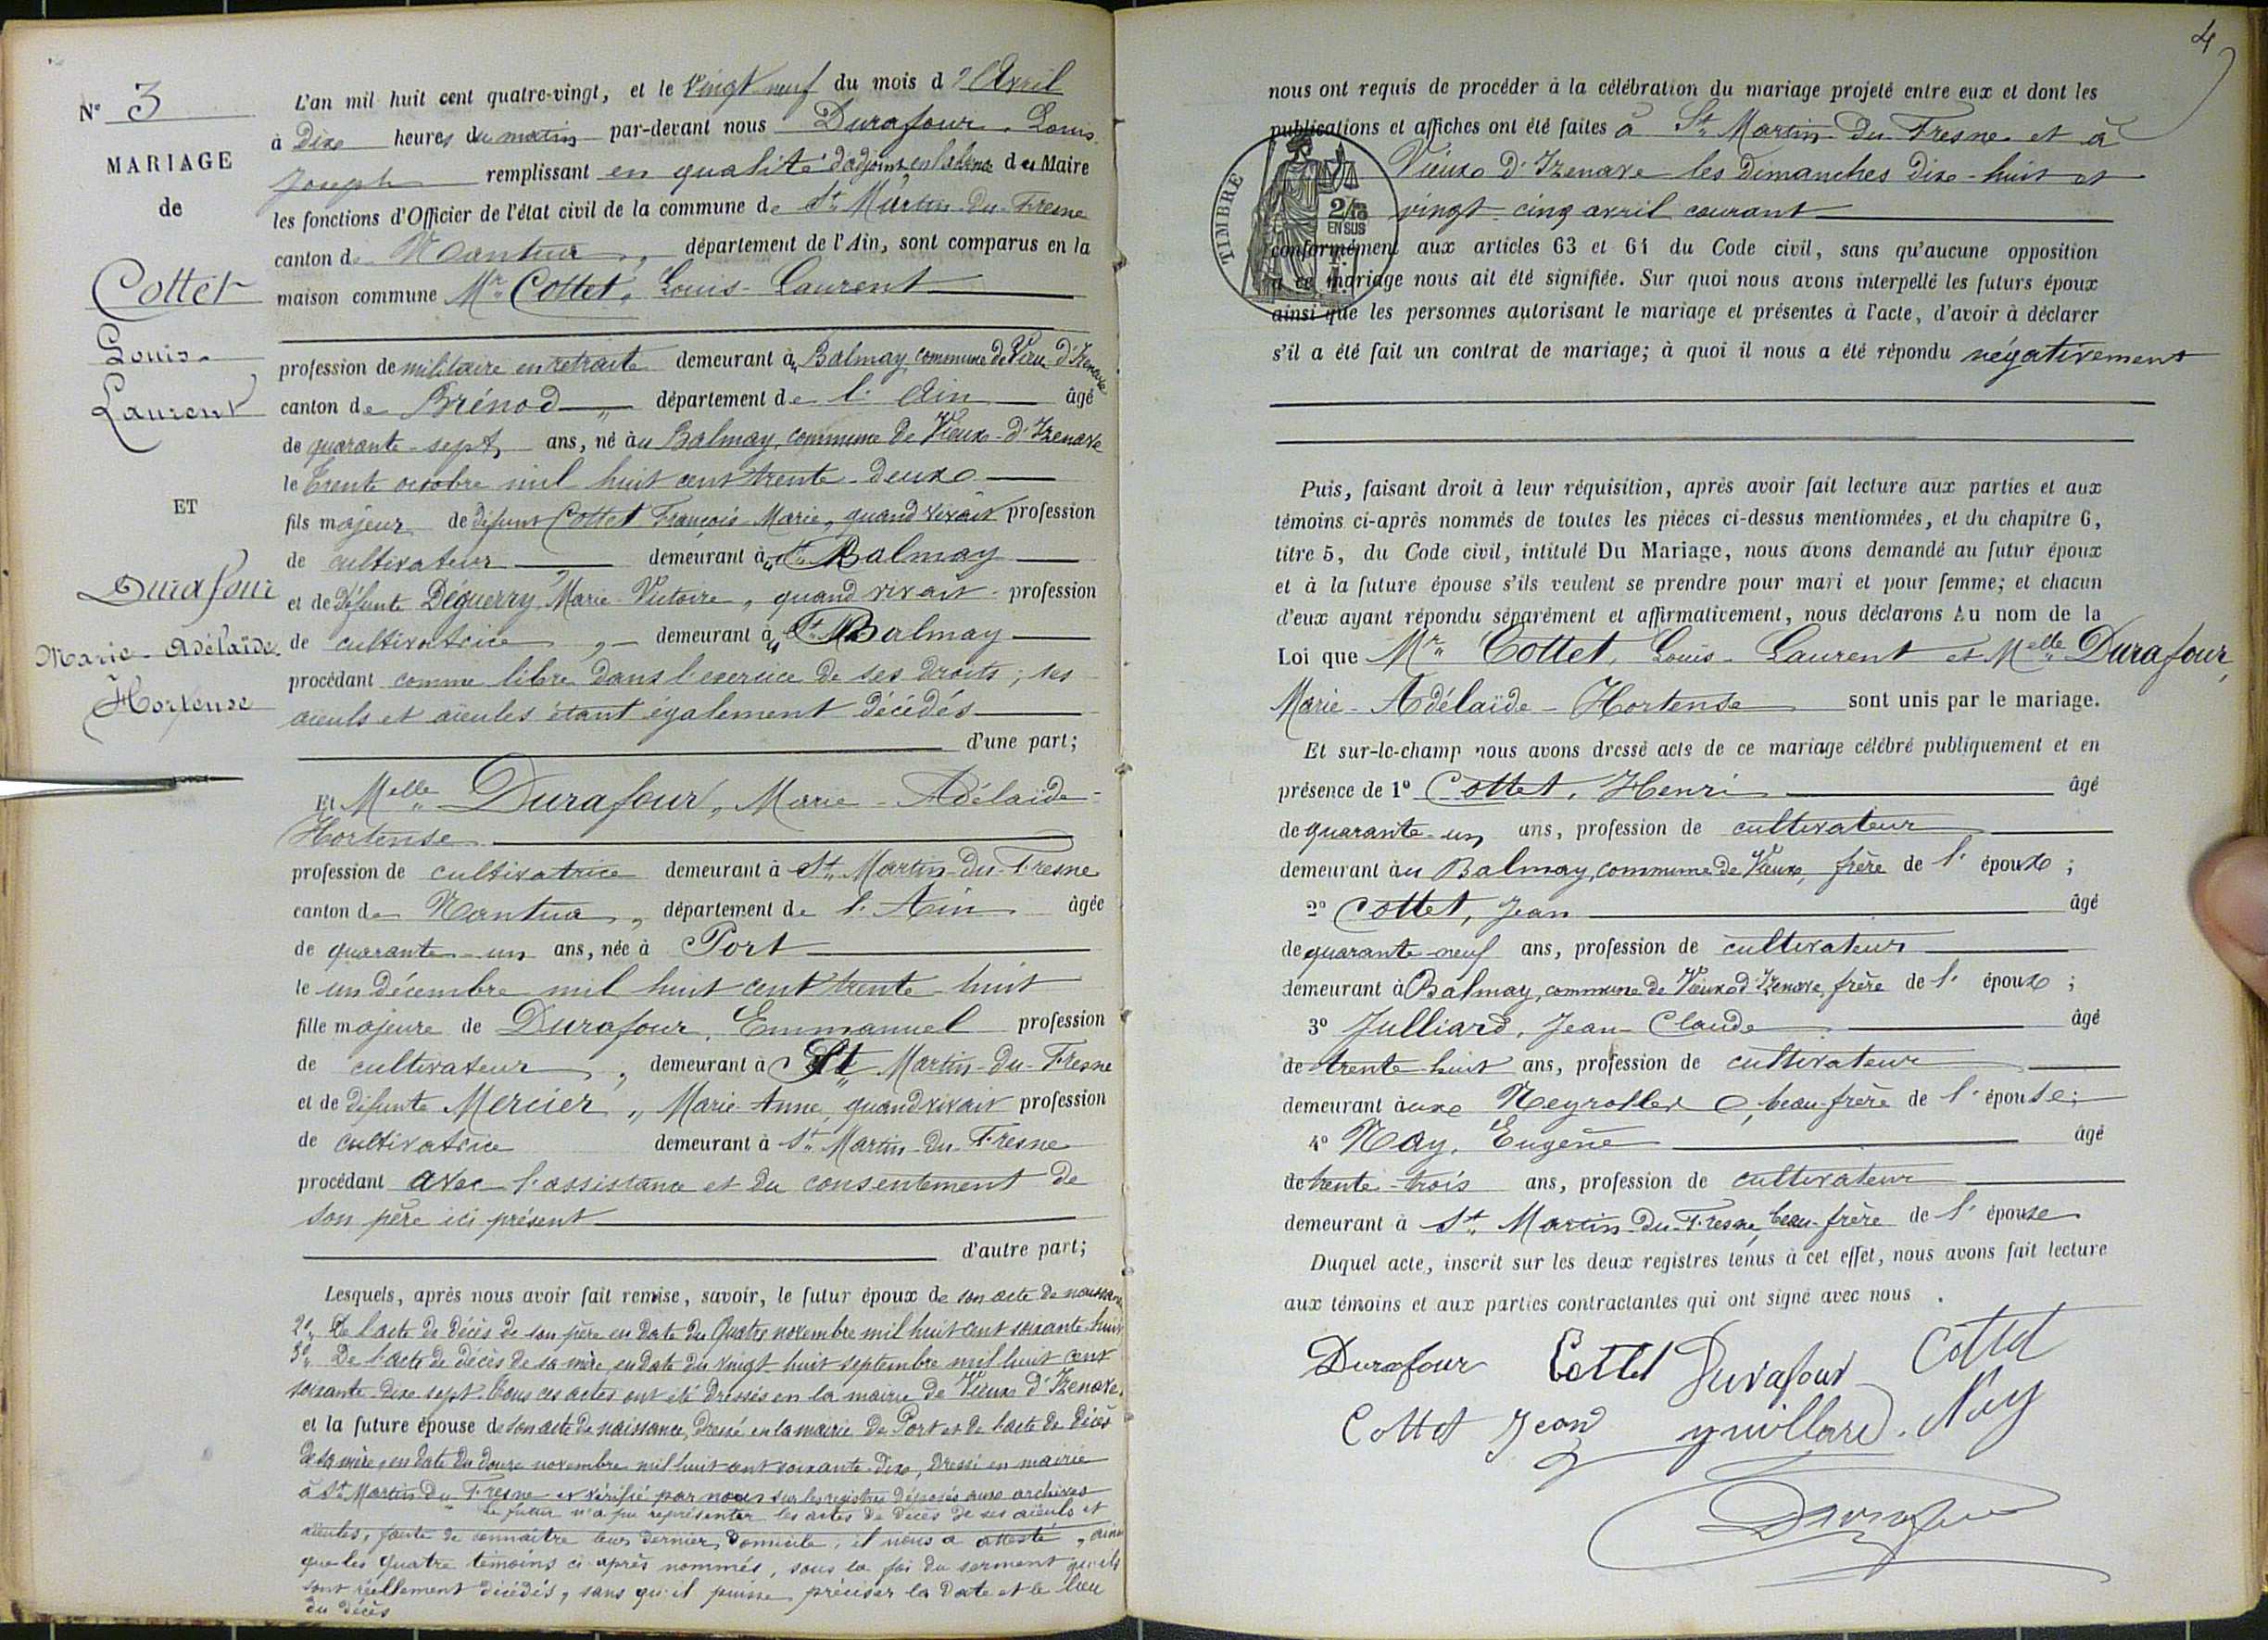 N° 3
MARIAGE
de
Cottet
Louis
Laurent
ET
Durafour
Marie-Adélaïde
Hortense
L'an mil huit cent quatre-vingt, et le vingt neuf du mois d'Avril
à Dix heures du matin par-devant nous Durafour, Louis
Joseph remplissant en qualité d'adjoint, en l'absence du Maire
les fonctions d'Officier de l'état civil de la commune de St Martin-du-Fresne
canton de Nantua, département de l'Ain, sont comparus en la
maison commune Mr Cottet, Louis-Laurent
profession de militaire en retraite demeurant à Balmay, commune de Vieu d'Izenave
canton de Brénod département de l'Ain âgé
de quarante-sept ans, né au Balmay, commune de Vieux-d'Izenave
le trente octobre mil huit cent trente-deux
fils majeur de défunt Cottet François-Marie, quand vivait profession
de cultivateur demeurant à Balmay
et de défunte Déguerry Marie-Victoire, quand vivait profession
de cultivatrice demeurant à Balmay
procédant comme libre dans l'exercice de ses droits; ses
aïeuls et aïeules étant également décédés
d'une part;
Et Melle Durafour, Marie-Adélaïde-
Hortense
profession de cultivatrice demeurant à St Martin-du-Fresne
canton de Nantua, département de l'Ain âgée
de quarante-un ans, née à Port
le un décembre mil huit cent trente-huit
fille majeure de Durafour, Emmanuel profession
de cultivateur, demeurant à St Martin-du-Fresne
et de défunte Mercier, Marie-Anne, quand vivait profession
de cultivatrice demeurant à St Martin-du-Fresne
procédant avec l'assistance et du consentement de
son père ici présent
d'autre part;
Lesquels, après nous avoir fait remise, savoir, le futur époux de son acte de naissance
2° De l'acte de décès de son père en date du Quatre novembre mil huit cent soixante-huit
3° De l'acte de décès de sa mère, en date du vingt-huit septembre mil huit cent
soixante-dix-sept. Tous ces actes ont été dressés en la mairie de Vieux d'Izenave.
et la future épouse de son acte de naissance, dressé en la mairie de Port et de l'acte de décès
de sa mère, en date du douze novembre mil huit cent soixante-dix, dressé en mairie
à St Martin-du-Fresne et vérifié par nous sur les registres déposés aux archives
Le futur n'a pu représenter les actes de décès de ses aïeuls et
aïeules, faute de connaître leur dernier domicile; il nous a attesté, ainsi
que les quatre témoins ci-après nommés, sous la foi du serment qu'ils
sont réellement décédés, sans qu'il puisse préciser la date et le lieu
du décès
4
nous ont requis de procéder à la célébration du mariage projeté entre eux et dont les
publications et affiches ont été faites à St Martin-du-Fresne et à
Vieux d'Izenave les dimanches dix-huit et
vingt-cinq avril courant
TIMBRE
2/10
EN SUS
conformément aux articles 63 et 64 du Code civil, sans qu'aucune opposition
à ce mariage nous ait été signifiée. Sur quoi nous avons interpellé les futurs époux
ainsi que les personnes autorisant le mariage et présentes à l'acte, d'avoir à déclarer
s'il a été fait un contrat de mariage; à quoi il nous a été répondu négativement
Puis, faisant droit à leur réquisition, après avoir fait lecture aux parties et aux
témoins ci-après nommés de toutes les pièces ci-dessus mentionnées, et du chapitre 6,
titre 5, du Code civil, intitulé Du Mariage, nous avons demandé au futur époux
et à la future épouse s'ils veulent se prendre pour mari et pour femme; et chacun
d'eux ayant répondu séparément et affirmativement, nous déclarons Au nom de la
Loi que Mr Cottet, Louis-Laurent et Melle Durafour,
Marie-Adélaïde-Hortense sont unis par le mariage.
Et sur-le-champ nous avons dressé acte de ce mariage célébré publiquement et en
présence de 1° Cottet, Henri âgé
de quarante-un ans, profession de cultivateur
demeurant au Balmay, commune de Vieux, frère de l'époux;
2° Cottet, Jean âgé
de quarante-neuf ans, profession de cultivateur
demeurant à Balmay, commune de Vieux d'Izenave, frère de l'époux;
3° Julliard, Jean-Claude âgé
de trente-huit ans, profession de cultivateur
demeurant aux Neyrolles, beau-frère de l'épouse;
4° Nay, Eugène âgé
de trente-trois ans, profession de cultivateur
demeurant à St Martin-du-Fresne, beau-frère de l'épouse
Duquel acte, inscrit sur les deux registres tenus à cet effet, nous avons fait lecture
aux témoins et aux parties contractantes qui ont signé avec nous.
Durafour Cottet Durafour Cottet
Cottet Jean Nay